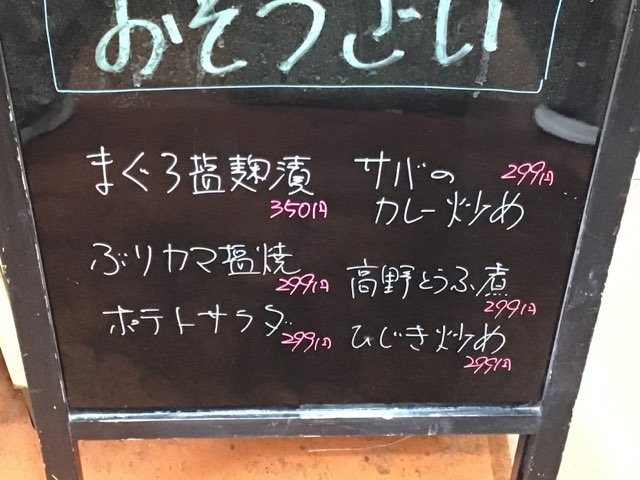 おそうざい
まぐろ塩麹漬
350円
ぶりカマ塩焼
299円
ポテトサラダ
299円
サバの 299円
カレー炒め
高野とうふ煮
299円
ひじき炒め
299円